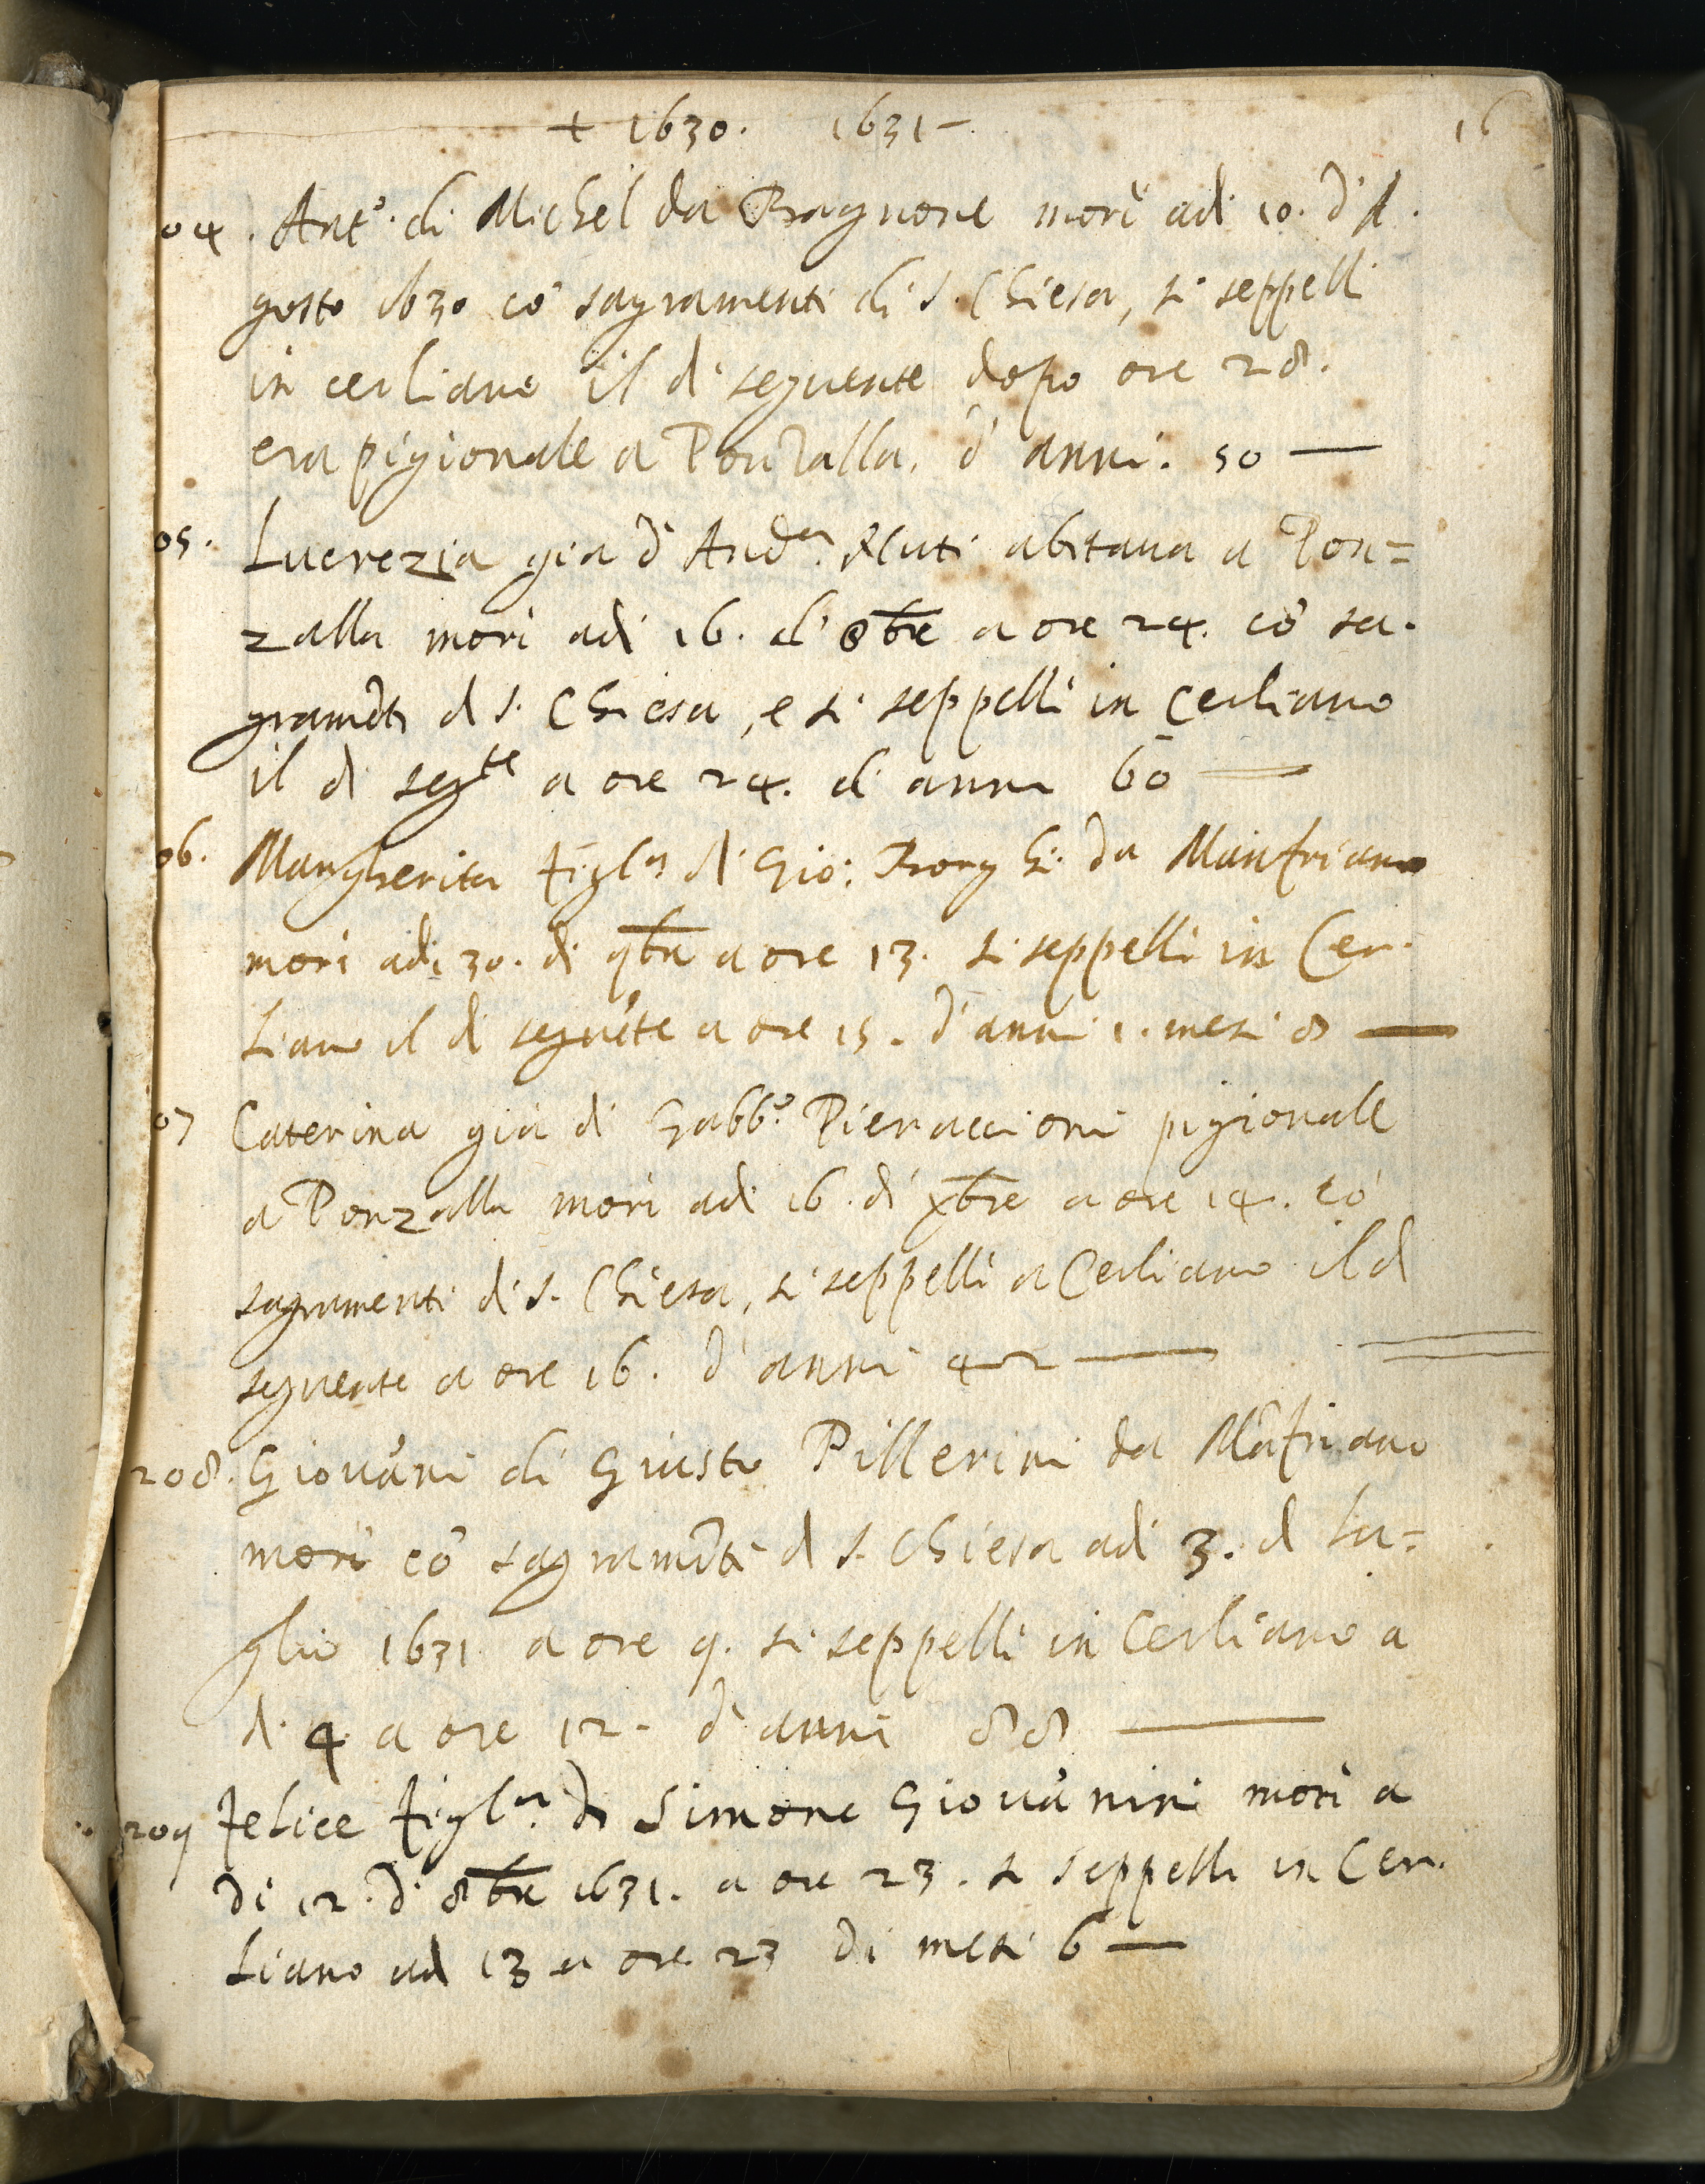 + 1630. 1631-
16
04. Ant.º di Michel da Bragnone morì adi 10. d'A.
gosto 1630 cō sagramenti di S. Chiesa, si seppellì
in cerliano il dì seguente dopo ore 28.
era pigionale a Ponzalla. d'anni. 50 —
05. Lucrezia già d'And.ª Nuti abitava a Pon=
zalla morì adi 16. d'8bre a ore 24. cō sa-
gramẽti d S. Chiesa, e si seppellì in Cerliano
il dì seg.te a ore 24. d'anni 60 —
06. Margherita figl.ª di Gio: Borghi da Manfriano
morì adi 30. di 9bre a ore 13. si seppellì in Cer-
liano il dì seguẽte a ore 15. d'anni 1. mesi 8 —
07 Caterina già di Gabb.º Pieraccioni pigionale
a Ponzalla morì adi 16. di xbre a ore 14. cō
sagramenti di S. Chiesa, si seppellì a Cerliano il d
seguente a ore 16. d'anni 42 —
208. Giovāni di Giusto Pillerini da Māfriano
morì cō sagramẽti d S. Chiesa adi 3. d Lu=
glio 1631 a ore 9. si seppellì in Cerliano a
di 4 a ore 12. d'anni 88 —
209 Felice figl.ª di Simone Giovānini morì a
di 12. d'8bre 1631. a ore 23. si seppellì in Cer-
liano ad 13 a ore 23 di mesi 6 —